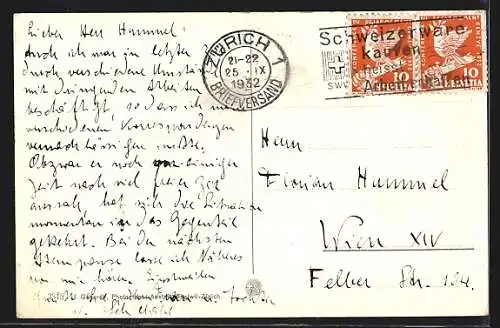 Lieber Herr Hummel!
durch ich war in letzter
durch verschiedene Umstände
mit dringenden Arbeiten
beschäftigt, so dass ich
verschiedenen Korrespondenzen
vernachlässigen mußte.
Obzwar es noch vor einiger
Zeit nach viel freier Zeit
aussah, hat sich die Situation
momentan in das Gegenteil
gekehrt. Bei der nächsten
Atempause lasse ich Näheres
von mir hören. Einstweilen
ZÜRICH 1
21-22
25. IX
1932
BRIEFVERSAND
Schweizerware
kaufen
heisst
Arbeit erhalten
10
10
HELVETIA
Herrn
Florian Hummel
Wien XIV
Felber Str. 124.